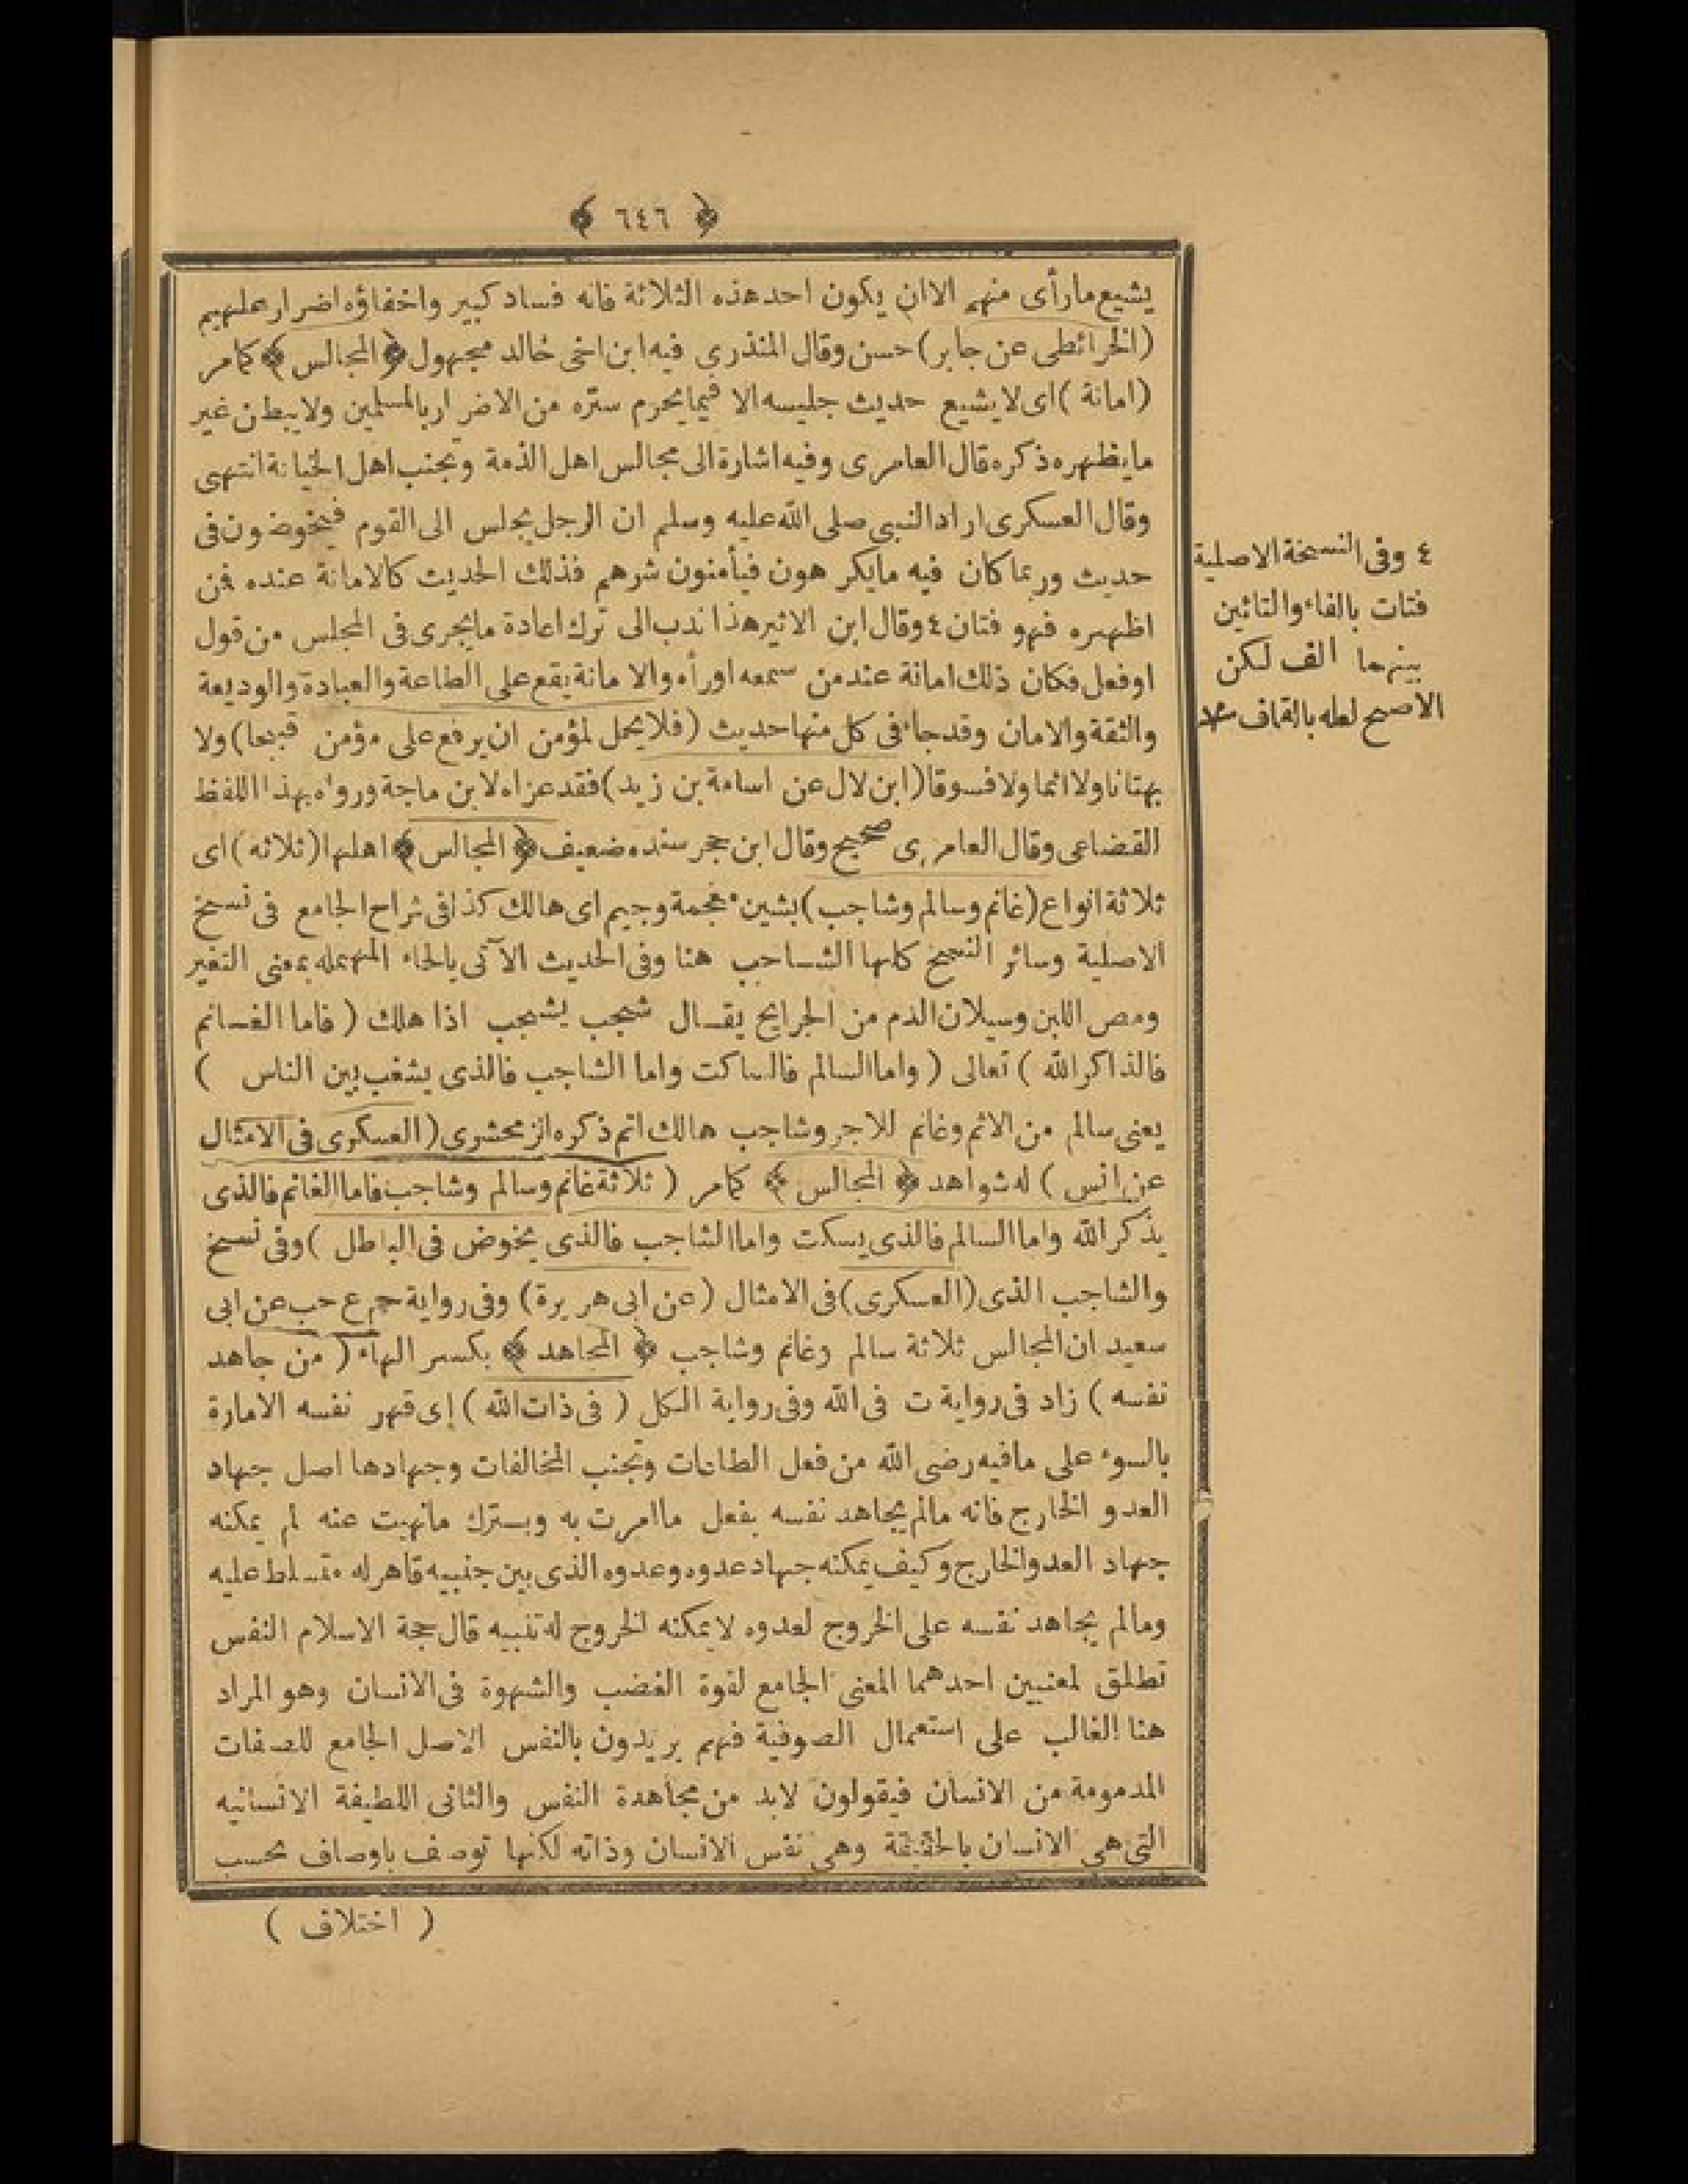 ﴿ ٦٤٦ ﴾
يشيع مارأى منهم الاان يكون احدهذه الثلاثة فانه فساد كبير واخفاؤه اضرار عليهم
(الخرائطى عن جابر) حسن وقال المنذرى فيه ابن اخى خالد مجهول ﴿ المجالس ﴾ كمامر
(امانة) اى لايشيع حديث جليسه الا فيمايحرم ستره من الاضرار بالمسلمين ولايبطن غير
مايظهره ذكره قال العامرى وفيه اشارة الى مجالس اهل الذمة وتجنب اهل الخيانة انتهى
وقال العسكرى اراد النبى صلى الله عليه وسلم ان الرجل يجلس الى القوم فيخوضون فى
حديث وربماكان فيه مايكرهون فيأمنون شرهم فذلك الحديث كالامانة عنده فمن
اظهره فهو فتان ٤ وقال ابن الاثير هذا ندب الى ترك اعادة مايجرى فى المجلس من قول
اوفعل فكان ذلك امانة عند من سمعه اورأه والامانة يقع على الطاعة والعبادة والوديعة
والثقة والامان وقدجاء فى كل منها حديث (فلايحل لمؤمن ان يرفع على مؤمن قبيحا) ولا
بهتانا ولااثما ولافسوقا (ابن لال عن اسامة بن زيد) فقد عزاه لابن ماجة ورواه بهذا اللفظ
القضاعى وقال العامرى صحيح وقال ابن حجر سنده ضعيف ﴿ المجالس ﴾ اهلها (ثلاثة) اى
ثلاثة انواع (غانم وسالم وشاجب) بشين معجمة وجيم اى هالك كذا فى شراح الجامع فى نسخ
الاصلية وسائر النسخ كلها الشاحب هنا وفى الحديث الآتى بالحاء المهمله بمعنى التغير
ومص اللبن وسيلان الدم من الجرايح يقال شجب يشجب اذا هلك (فاما الغانم
فالذاكر الله) تعالى (واما السالم فالساكت واما الشاجب فالذى يشغب بين الناس)
يعنى سالم من الاثم وغانم للاجر وشاجب هالك اثم ذكره الزمخشرى (العسكرى فى الامثال
عن انس) له شواهد ﴿ المجالس ﴾ كمامر (ثلاثة غانم وسالم وشاجب فاما الغانم فالذى
يذكر الله واما السالم فالذى يسكت واما الشاجب فالذى يخوض فى الباطل) وفى نسخ
والشاجب الذى (العسكرى) فى الامثال (عن ابى هريرة) وفى رواية حم ع حب عن ابى
سعيد ان المجالس ثلاثة سالم وغانم وشاجب ﴿ المجاهد ﴾ بكسر الهاء (من جاهد
نفسه) زاد فى رواية ت فى الله وفى رواية الكل (فى ذات الله) اى قهر نفسه الامارة
بالسوء على مافيه رضى الله من فعل الطاعات وتجنب المخالفات وجهادها اصل جهاد
العدو الخارج فانه مالم يجاهد نفسه بفعل ماامرت به وبترك مانهيت عنه لم يمكنه
جهاد العدو الخارج وكيف يمكنه جهاد عدوه وعدوه الذى بين جنبيه قاهر له متسلط عليه
ومالم يجاهد نفسه على الخروج لعدوه لايمكنه الخروج له تنبيه قال حجة الاسلام النفس
تطلق لمعنيين احدهما المعنى الجامع لقوة الغضب والشهوة فى الانسان وهو المراد
هنا الغالب على استعمال الصوفية فهم يريدون بالنفس الاصل الجامع للصفات
المذمومة من الانسان فيقولون لابد من مجاهدة النفس والثانى اللطيفة الانسانيه
التى هى الانسان بالحقيقة وهى نفس الانسان وذاته لكنها توصف باوصاف بحسب
(اختلاف)
٤ وفى النسخة الاصلية
فتات بالفاء والتائين
بينهما الف لكن
الاصح لعله بالقاف